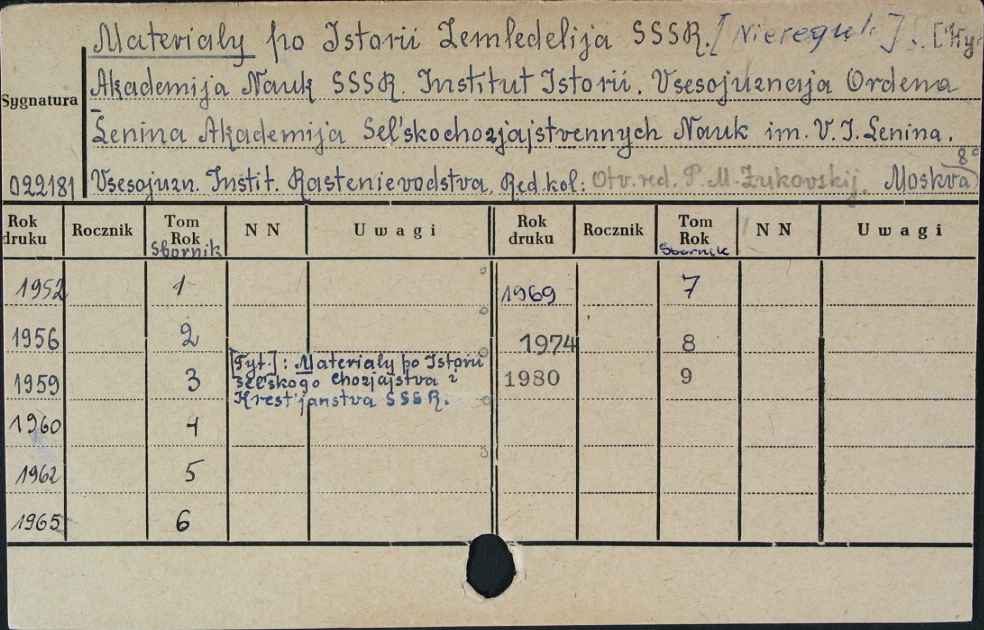 Materialy po Istorii Zemledelija SSSR. [Nieregul.]
Akademija Nauk SSSR. Institut Istorii. Vsesojuznaja Ordena
Sygnatura
Lenina Akademija Sel'skochozjajstvennych Nauk im. V. I. Lenina.
8°
022181 Vsesojuzn. Instit. Rastenievodstva. Red. kol: Otv. red. P. M. Żukovskij. Moskva
Rok druku Rocznik Tom Rok Sbornik N N Uwagi Rok druku Rocznik Tom Rok Sbornik N N Uwagi
1952 1 1969 7
1956 2 1974 8
[Tyt.]: Materialy po Istorii
1959 3 sel'skogo chozjajstva i 1980 9
Krest'janstva SSSR.
1960 4
1962 5
1965 6